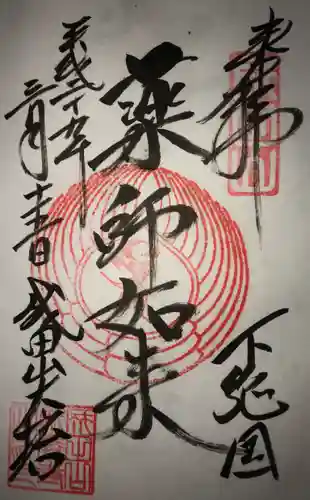 奉拝
下総国
薬師如来
平成二十九年
三月十五日
成田山大塔